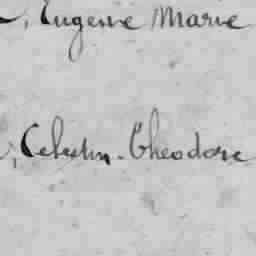 , Eugenie Marie
, Celestin. Theodore